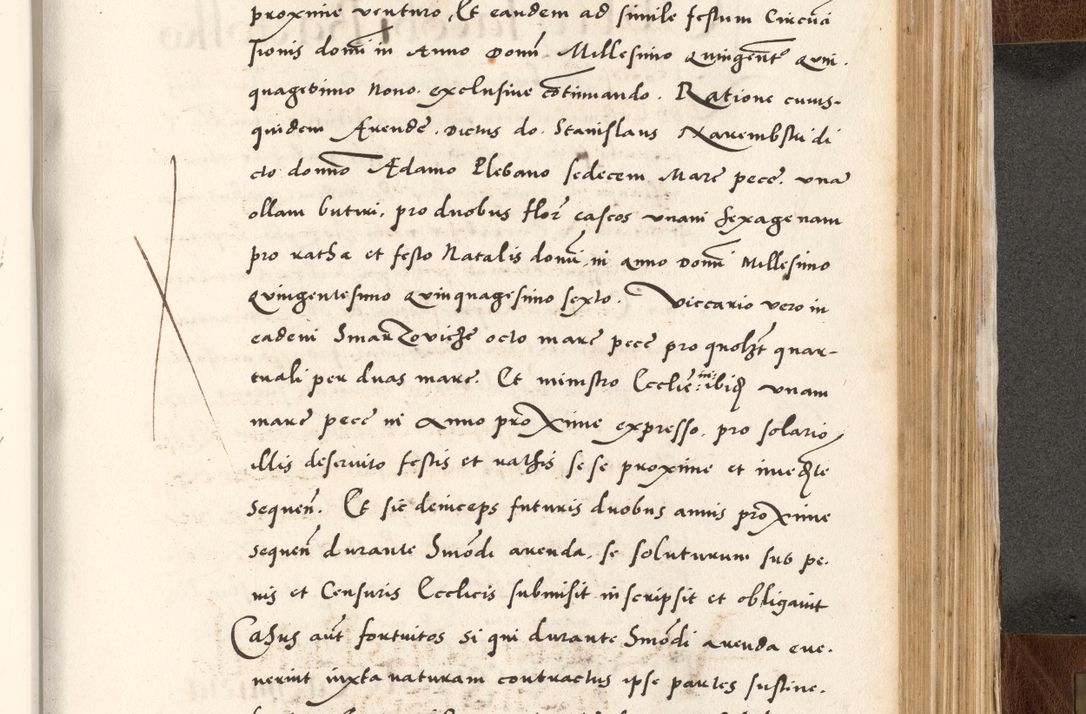 proxime venturo, Et eandem ad simile festum Circuncī
sionis domī in Anno Domī Millesimo Quingentº Quin-
quagesimo Nono. exclusive cōtinuando. Ratione cuius-
quidem Arendę. Dictus do. Stanislaus Xarembski di
cto domno Adamo Plebano sedecem Marc pecc. una
ollam butiri, pro duobus flor caseos unam sexagenam
pro ratha et festo Natalis domī, in Anno Domī Millesimo
Quingentesimo Quinquagesimo sexto. Viccario vero in
eadem Smarzovicze octo marc pecc pro quolzt quar-
tuali per duas marc. Et ministro Ecclię ibidem unam
marc pecc in Anno proxime expresso, pro solario
illis deservito festis et rathis se se proxime et imedte
sequen. Et sic deinceps futuris duobus annis proxime
sequen durante Smōdi arenda, se soluturum sub pe-
nis et Censuris Ecclicis submisit inscripsit et obligavit
Casus aūt fortuitos si qui durante Smōdi arenda eve-
nerint iuxta naturam contractus ipse partes sustine-